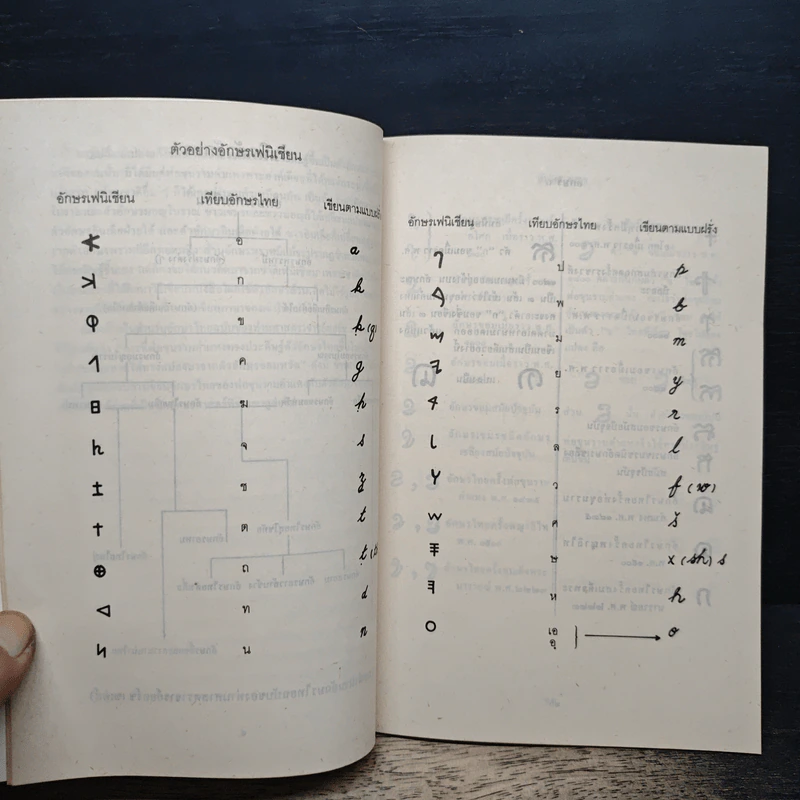 ตัวอย่างอักษรเฟนิเชียน
อักษรเฟนิเชียน เทียบอักษรไทย เขียนตามแบบฝรั่ง
𐤀 อ a
𐤊 ก k
𐤒 ข ḳ (q)
𐤂 ค g
𐤇 ฆ ḥ
จ s
𐤆 ช
𐤕 ต t
𐤈 ถ
𐤃 ท d
𐤍 น n
อักษรเฟนิเชียน เทียบอักษรไทย เขียนตามแบบฝรั่ง
𐤐 ป p
𐤁 พ b
𐤌 ม m
𐤉 ย y
𐤓 ร r
𐤋 ล l
𐤅 ว f (w)
𐤔 ศ š
𐤎 ษ x (sh) s
𐤄 ห h
𐤏 เอ → o
อุ